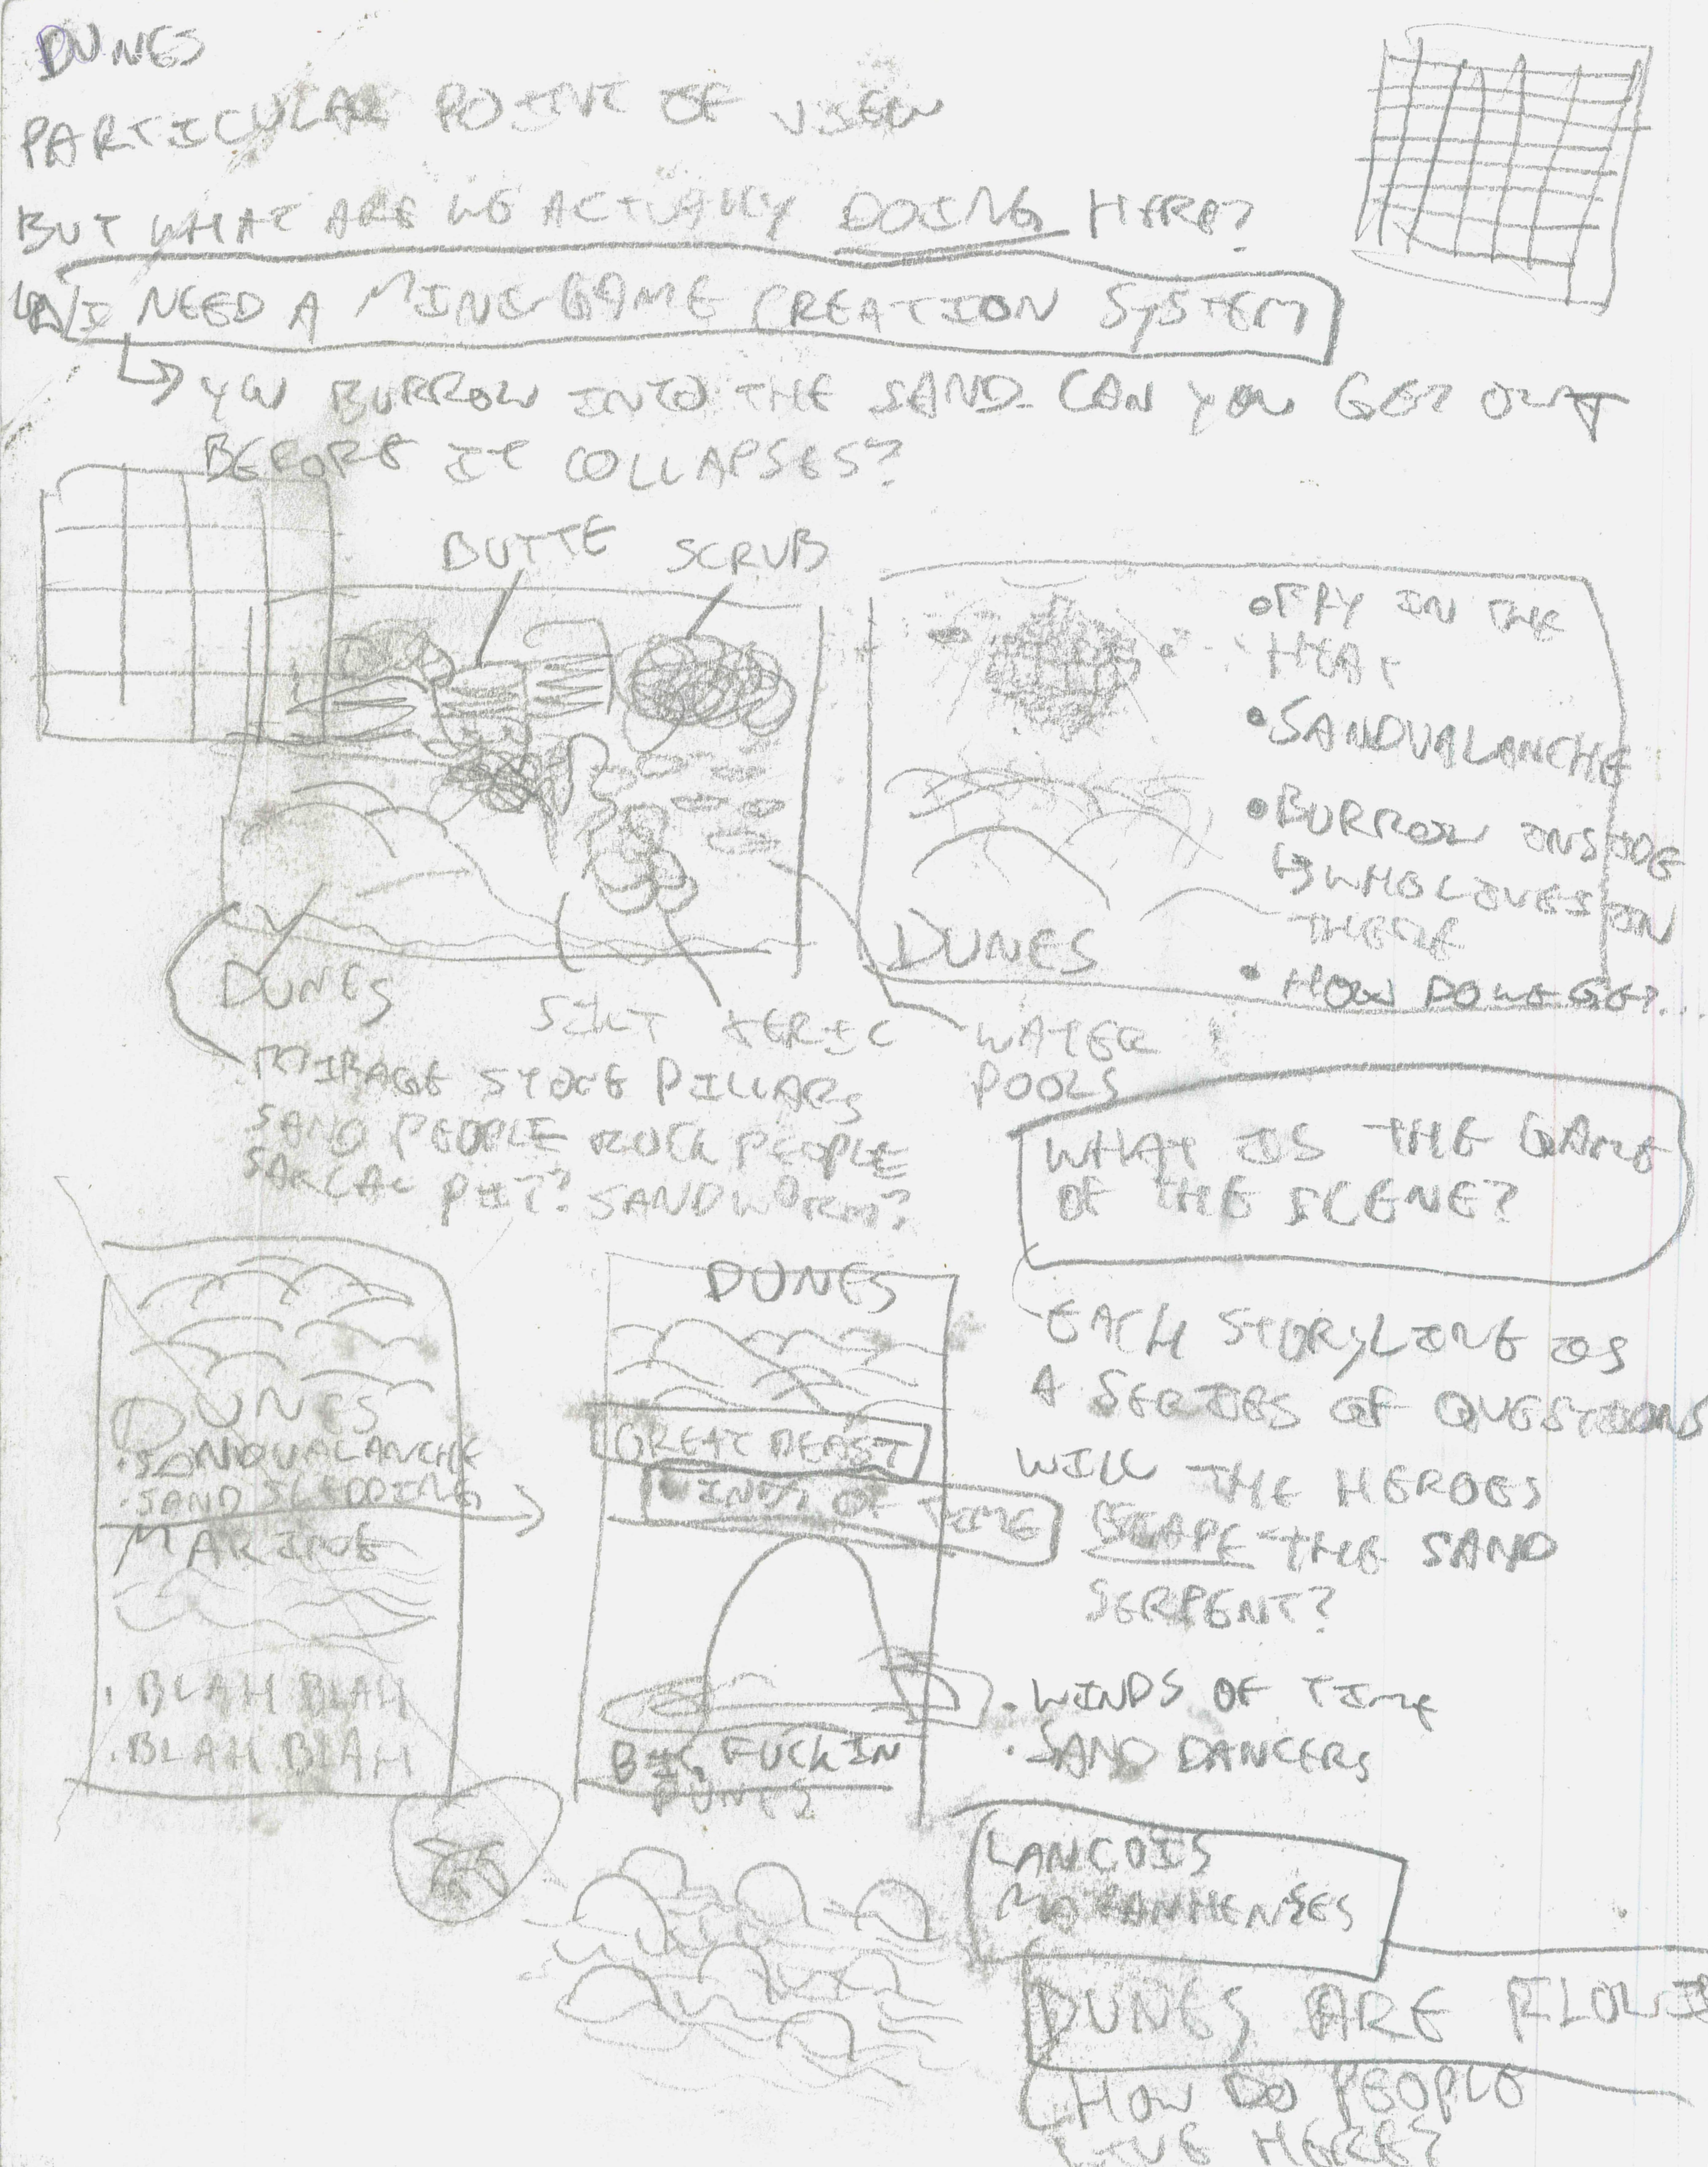 DUNES
PARTICULAR POINT OF VIEW
BUT WHAT ARE WE ACTUALLY DOING HERE?
I NEED A MINI-GAME CREATION SYSTEM
YOU BURROW INTO THE SAND. CAN YOU GET OUT
BEFORE IT COLLAPSES?
BUTTE SCRUB
• FRY IN THE
HEAT
• SANDVALANCHE
• BURROW INSIDE
WHO LIVES IN
THERE
• HOW DO WE GET...
DUNES
DUNES
SILT XERIC WATER
POOLS
MIRAGE STONE PILLARS
SAND PEOPLE ROCK PEOPLE
SARLAC PIT? SANDWORM?
WHAT IS THE GAME
OF THE SCENE?
EACH STORYLINE IS
A SERIES OF QUESTIONS
WILL THE HEROES
ESCAPE THE SAND
SERPENT?
• WINDS OF TIME
• SAND DANCERS
DUNES
• SANDVALANCHE
• SAND SLEDDING
MARINE
• BLAH BLAH
• BLAH BLAH
DUNES
GREAT BEAST
WINDS OF TIME
BIG FUCKIN
DUNES
LANCOIS
MARANHENSES
DUNES ARE
HOW DO PEOPLE
LIVE HERE?